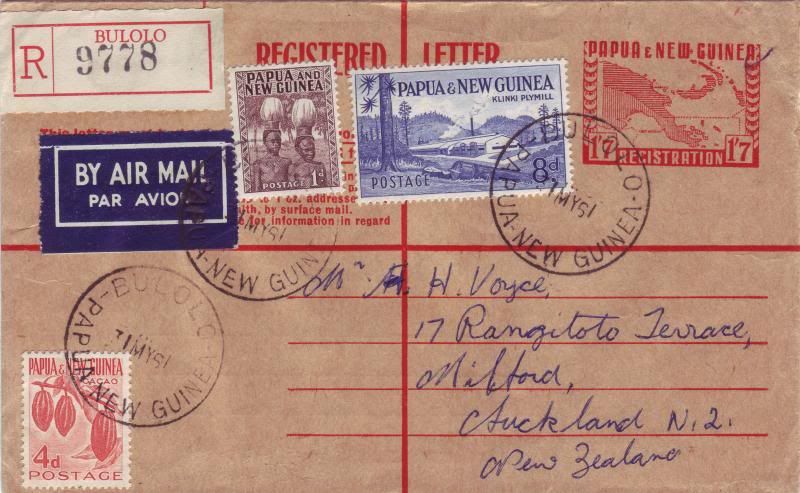 R
BULOLO
9778
REGISTERED LETTER
PAPUA & NEW GUINEA
1'7 REGISTRATION 1'7
BY AIR MAIL
PAR AVION
PAPUA AND
NEW GUINEA
POSTAGE 1d
PAPUA & NEW GUINEA
KLINKI PLYMILL
POSTAGE 8d
This letter must
to 1 oz. addresse
ith, by surface mail.
for information in regard
BULOLO
PAPUA-NEW GUINEA
MY51
-NEW GUIN
BULOLO
PAPUA-NEW GUINEA
31MY51
PAPUA & NEW GUINEA
CACAO
4d
POSTAGE
Mr H. Voyce,
17 Rangitoto Terrace,
Milford,
Auckland N.2.
New Zealand